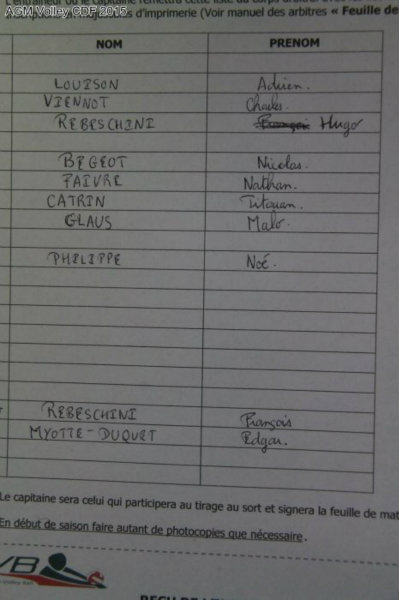 AGM Volley CDF 2015
L'entraîneur ou le capitaine remettra cette liste
d'imprimerie (Voir manuel des arbitres « Feuille de
NOM PRENOM
LOUISON Adrien.
VIENNOT Charles.
REBESCHINI François Hugo
BEGEOT Nicolas.
FAIVRE Nathan.
CATRIN Titouan.
GLAUS Malo.
PHILIPPE Noé.
REBESCHINI François
MYOTTE-DUQUET Edgar.
Le capitaine sera celui qui participera au tirage au sort et signera la feuille de mat
En début de saison faire autant de photocopies que nécessaire.
VB